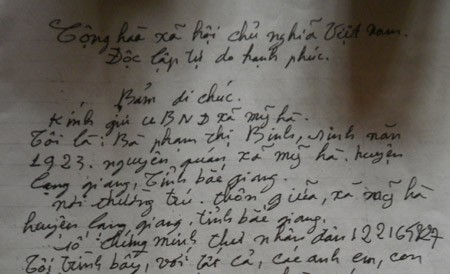 Cộng hòa xã hội chủ nghĩa Việt nam.
Độc lập tự do hạnh phúc.
Bản di chúc.
Kính gửi UBND xã mỹ hà.
Tôi là: Bà phạm thị Bính, sinh năm
1923. nguyên quán xã mỹ hà. huyện
lạng giang, Tỉnh bắc giang.
nơi thường trú. thôn giữa, xã mỹ hà
huyện lạng giang, tỉnh bắc giang.
số chứng minh thư nhân dân
Tôi trình bầy, với tất cả, các anh em, con